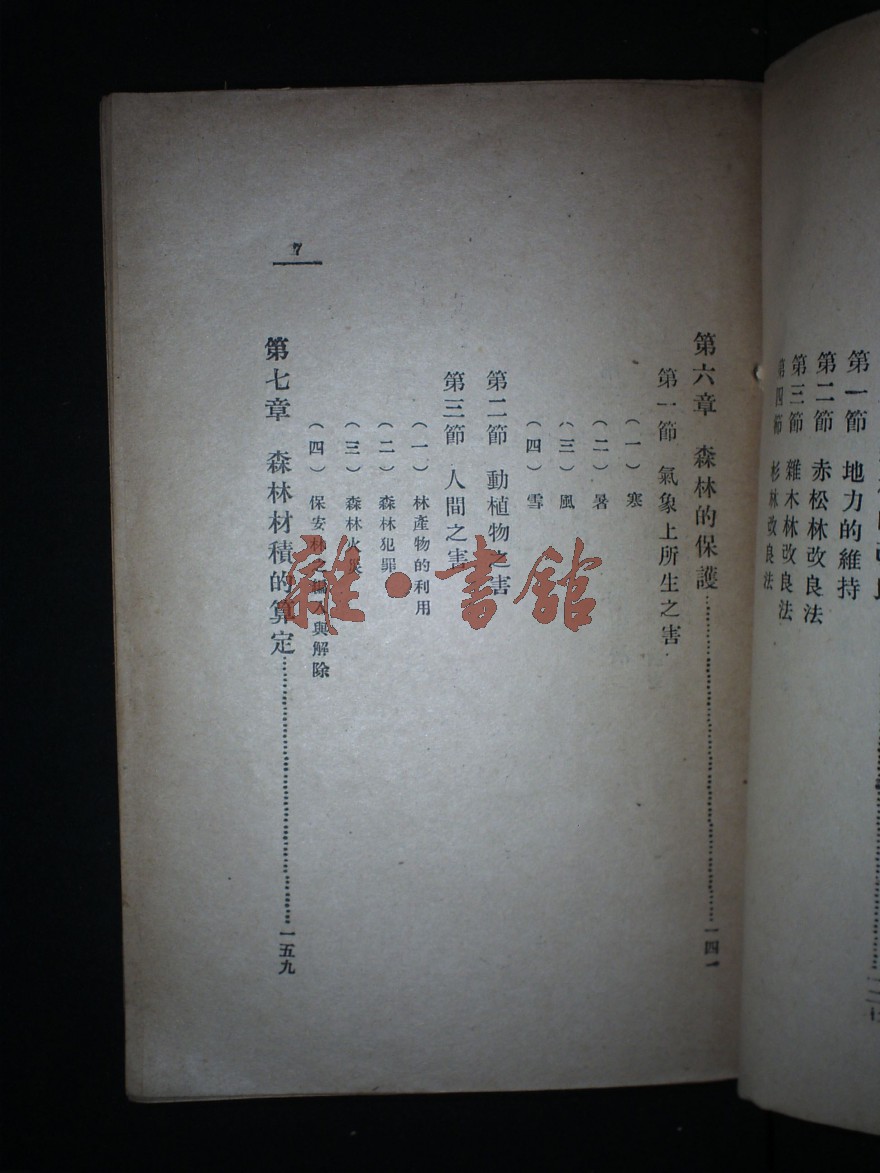 第一節 地力的維持
第二節 赤松林改良法
第三節 雜木林改良法
第四節 杉林改良法
7
第六章 森林的保護 一四一
第一節 氣象上所生之害
（一）寒
（二）暑
（三）風
（四）雪
第二節 動植物之害
第三節 人間之害
（一）林產物的利用
（二）森林犯罪
（三）森林火災
（四）保安林之編入與解除
第七章 森林材積的算定 一五九
雜·書館